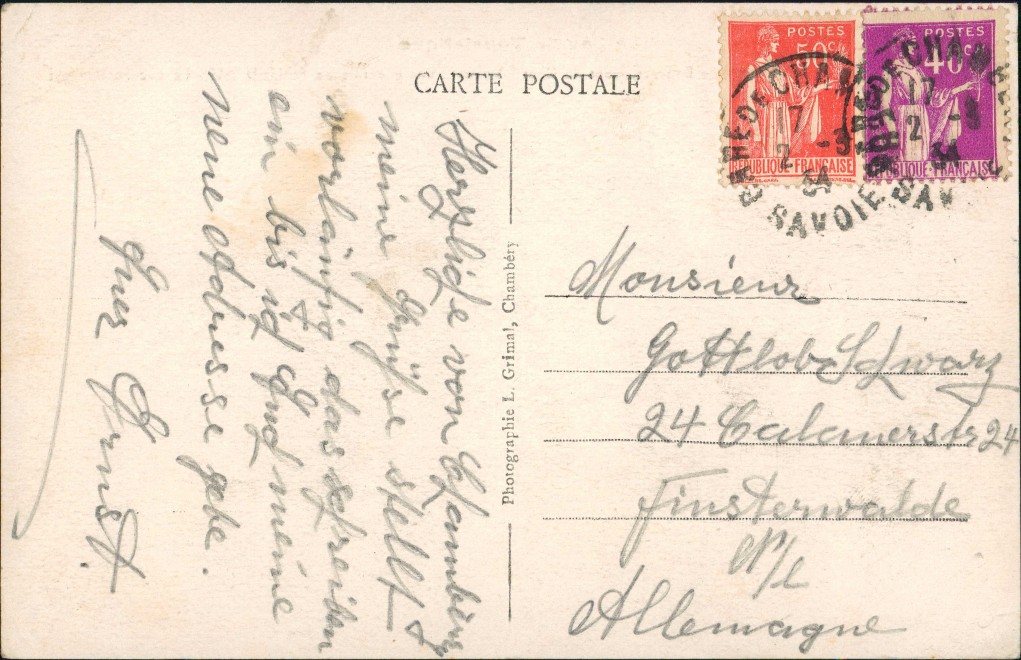 CARTE POSTALE
POSTES
50c
REPUBLIQUE FRANÇAISE
POSTES
40c
REPUBLIQUE FRANÇAISE
17
2 -3
34
SAVOIE
17
2 -3
34
SAV
Photographie L. Grimal, Chambéry
Herzliche von Chambéry
meine Grüße stellt &
vorläufig das schreiben
ein bis ich Euch meine
neue adresse gebe.
Euer Ernst.
Monsieur
Gottlob Schwarz
24 Calauerstr 24
Finsterwalde
N/L
Allemagne